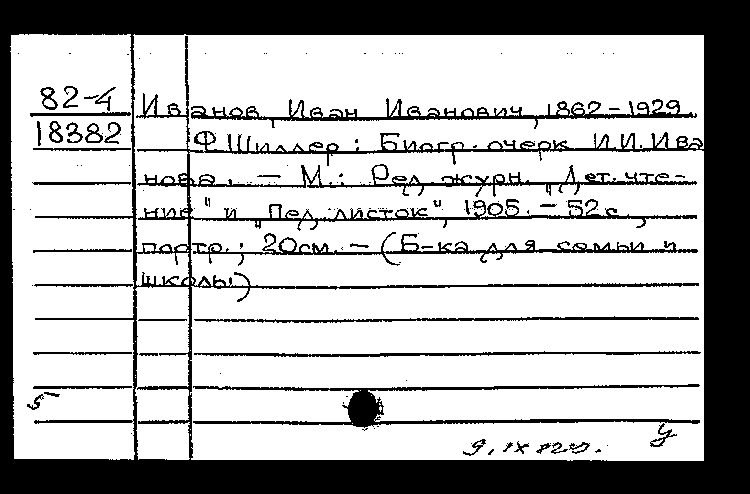 82-4 Иванов, Иван Иванович, 1862-1929.
18382 Ф. Шиллер : Биогр. очерк И.И. Ива
нова. — М.: Ред. журн. „Дет. чте-
ние" и „Пед. листок", 1905. — 52 с.,
портр.; 20см. — (Б-ка для семьи и
школы)
5
у
9. IX